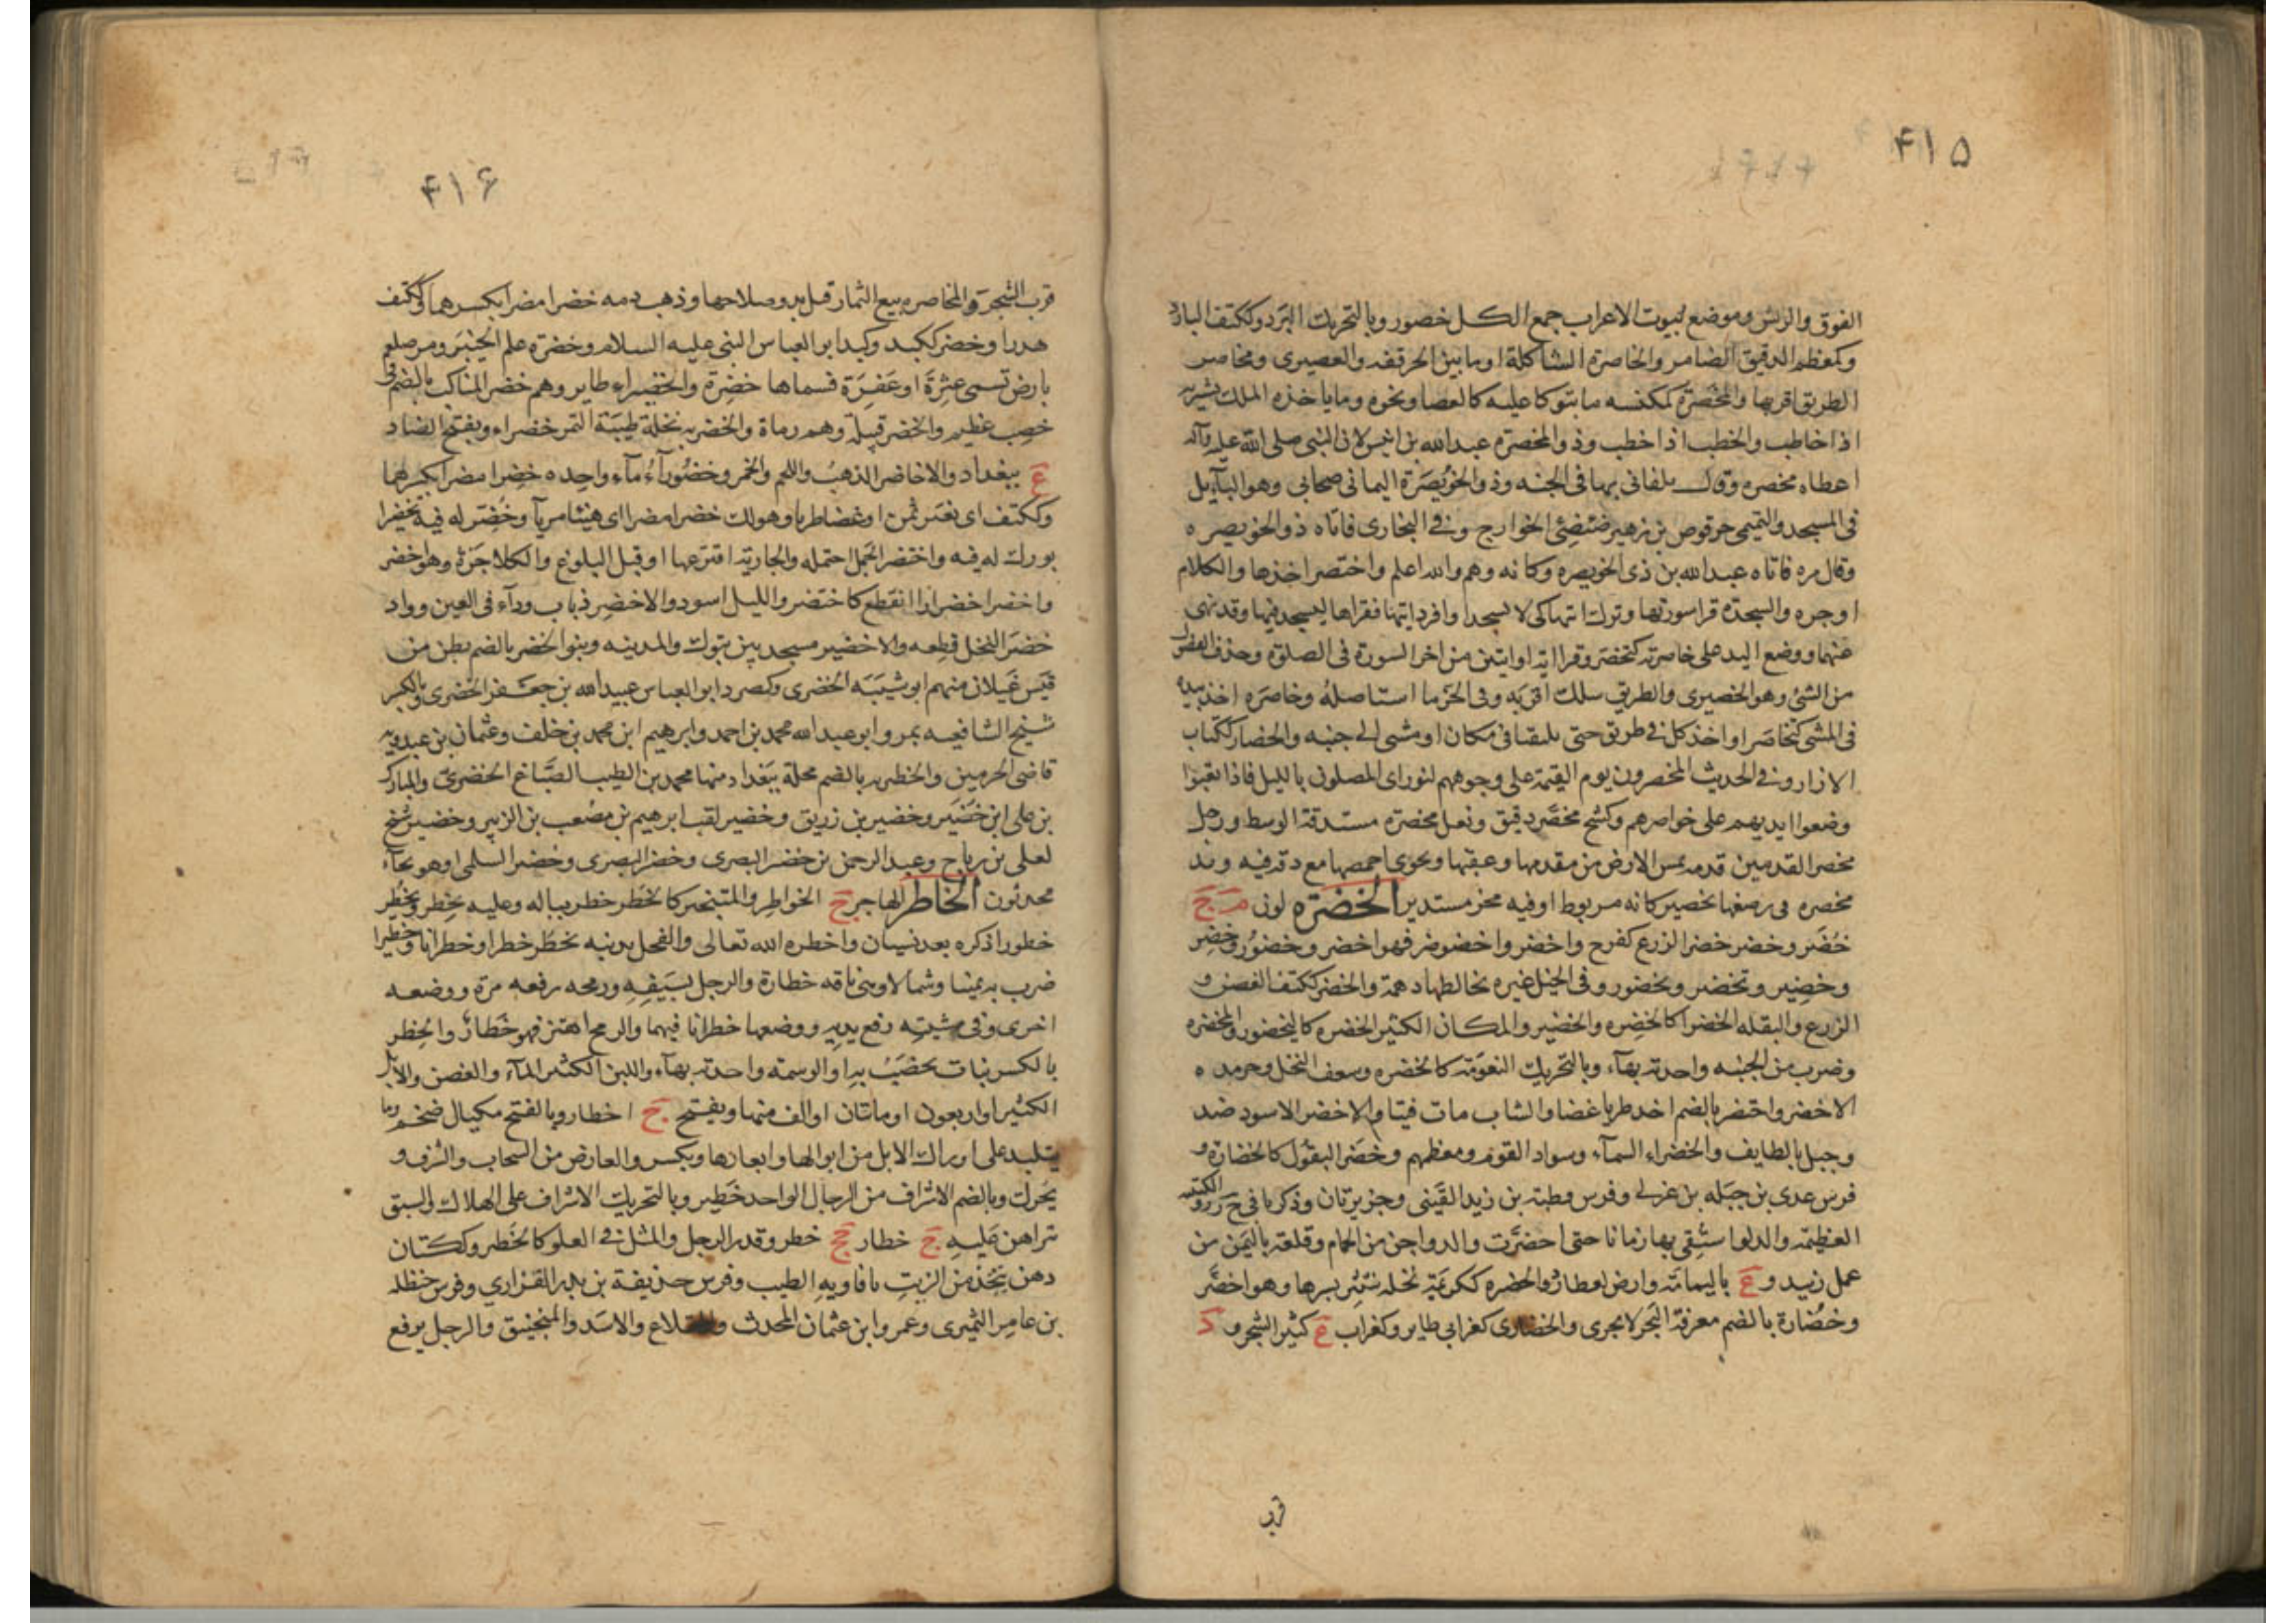 ٤١٥
الفوق والريش وموضع لبيوت الاعراب جمع الكل خصور وبالتحريك البرد وككتف البارد
وكمعظم الدقيق الضامر والخاصرة الشاكلة او ما بين الحرقفه والقصيرى ومخاصر
الطريق اقربها والمخصرة كمكنسه ما يتوكا عليه كالعصا ونحوه وما ياخذه الملك يشير به
اذا خاطب والخطيب اذا خطب وذو المخصره عبدالله بن انيس لان النبى صلى الله عليه وآله
اعطاه مخصره وقال تلقانى بها فى الجنه وذو الخويصرة اليمانى صحابى وهو البآيل
فى المسجد والتميمى حرقوص بن زهير ضئضئ الخوارج وفى البخارى فاتاه ذو الخويصره
وقال مره فاتاه عبدالله بن ذى الخويصره وكانه وهم والله اعلم واختصر اخذها والكلام
اوجزه والسجدة قرا سورتها وترك ايتها كى لا يسجد او افرد ايتها فقراها ليسجد فيها وقد نهى
عنهما ووضع اليد على خاصرته كتخصر وقرا اية او ايتين من اخر السورة فى الصلوة وحذف الفضول
من الشئ وهو الخصيرى والطريق سلك اقربه وفى الحز ما استاصله وخاصره اخذ بيده
فى المشى كتخاصر او اخذ كل فى طريق حتى يلتقيا فى مكان او مشى الى جنبه والخصار ككتاب
الازار وفى الحديث المخصرون يوم القيمة على وجوههم النور اى المصلون بالليل فاذا تعبوا
وضعوا ايديهم على خواصرهم وكشح مخصر دقيق ونعل مخصرة مستدقة الوسط ورجل
مخصر القدمين قدمه تمس الارض من مقدمها وعقبها ويخوى اخمصها مع دقة فيه ويد
مخصره فى رصغها تخصير كانه مربوط او فيه محز مستدير الخضرة لون م ج
خضر وخضر خضر الزرع كفرح واخضر واخضوضر فهو اخضر وخضور وخضر
وخضير وتخضر ويخضور وفى الخيل غبره تخالطها دهمة والخضر ككتف الغصن و
الزرع والبقله الخضرا كالخضره والخضير والمكان الكثير الخضره كاليخضور والمخضره
وضرب من الجنبه واحدته بهآء وبالتحريك النعومة كالخضره وسعف النخل وجريده
الاخضر واختضر بالضم اخذ طريا غضا والشاب مات فتيا والاخضر الاسود ضد
وجبل بالطايف والخضراء السمآء وسواد القوم ومعظمهم وخضر البقول كالخضارة و
فرس عدى بن جبله بن عركى وفرس قطبة بن زيد القينى وجزيرتان وذكرا فى ج ز ر والكتيبه
العظيمة والدلو استقى بها زمانا حتى اخضرت والدواجن من الحمام وقلعة باليمن من
عمل زبيد و ع باليمامة وارض لعطارد والخضره ككريمة نخله ينتثر بسرها وهو اخضر
وخضارة بالضم معرفة البحر لا يجرى والخضارى كغرابى طاير وكغراب ع كثير الشجر و د
قرب
٤١٦
قرب الشجرة والمخاصره بيع الثمار قبل بدو صلاحها وذهب دمه خضرا مضرا بكسرهما وككتف
هدرا وخضر ككبد وكبد ابو العباس النبى عليه السلام وخضره علم لخيبر ومر صلعم
بارض تسمى عثرة او عفرة فسماها خضرة والخضيراء طاير وهم خضر المناكب بالضم فى
خصب عظيم والخضر قبيلة وهم رماة والخضريه نخلة طيبة التمر خضراء وبفتح الضاد
ع ببغداد والاخاضر الذهب واللحم والخمر وخضوراء مآء واحده خضرا مضرا بكسرهما
وككتف اى بغير ثمن او غضا طريا وهو لك خضرا مضرا اى هنيئا مريآ وخضر له فيه تخضيرا
بورك له فيه واختضر الحمل احتمله والجارية افترعها او قبل البلوغ والكلا جزه وهو اخضر
واخضر اخضرارا انقطع كاختضر والليل اسود والاخضر ذباب ورآء فى العين وواد
خضر النخل قطعه والاخضير مسجد بين تبوك والمدينه وبنو الخضر بالضم بطن من
قيس غيلان منهم ابو شيبه الخضرى وكصرد ابو العباس عبيدالله بن جعفر الخضرى وبالكسر
شيخ الشافعيه بمرو ابو عبدالله محمد بن احمد وابرهيم ابن محمد بن خلف وعثمان بن عبدويه
قاضى الحرمين والخظريه بالضم محلة ببغداد منها محمد بن الطيب الصباغ الخضرى والمبارك
بن على ابن خضير وخضير بن زريق وخضير لقب ابرهيم بن مصعب بن الزبير وخضير شيخ
لعلى بن رباح وعبد الرحمن بن خضر البصرى وخضر البصرى وخضر السلمى او هو بحآء
محدثون الخاطر الهاجس ج الخواطر والمتبختر كالخطر خطر بباله وعليه يخطر ويخطر
خطورا ذكره بعد نسيان واخطره الله تعالى والفحل بذنبه يخطر خطرا وخطرانا وخطيرا
ضرب به يمينا وشمالا وهى ناقه خطارة والرجل بسيفه ورمحه رفعه مرة ووضعه
اخرى وفى مشيته رفع يديه ووضعها خطرانا فيهما والرمح اهتز فهو خطار والخطر
بالكسر نبات يخضب به او الوسمة واحدته بهآء واللبن الكثير المآء والغصن والابل
الكثير او اربعون او ماتان او الف منها ويفتح ج اخطار وبالفتح مكيال ضخم وما
يتلبد على اوراك الابل من ابوالها وابعارها ويكسر والعارض من السحاب والشرف و
يحرك وبالضم الاشراف من الرجال الواحد خطير وبالتحريك الاشراف على الهلاك والسبق
تراهن عليه ج خطار جج خطر وقدر الرجل والمثل فى العلو كالخطر وككتان
دهن يتخذ من الزيت بافاويه الطيب وفرس حذيفة بن بدر الفزاري وفرس حنظله
بن عامر النميرى وعمرو ابن عثمان المحدث والمقلاع والاسد والمنجنيق والرجل يرفع